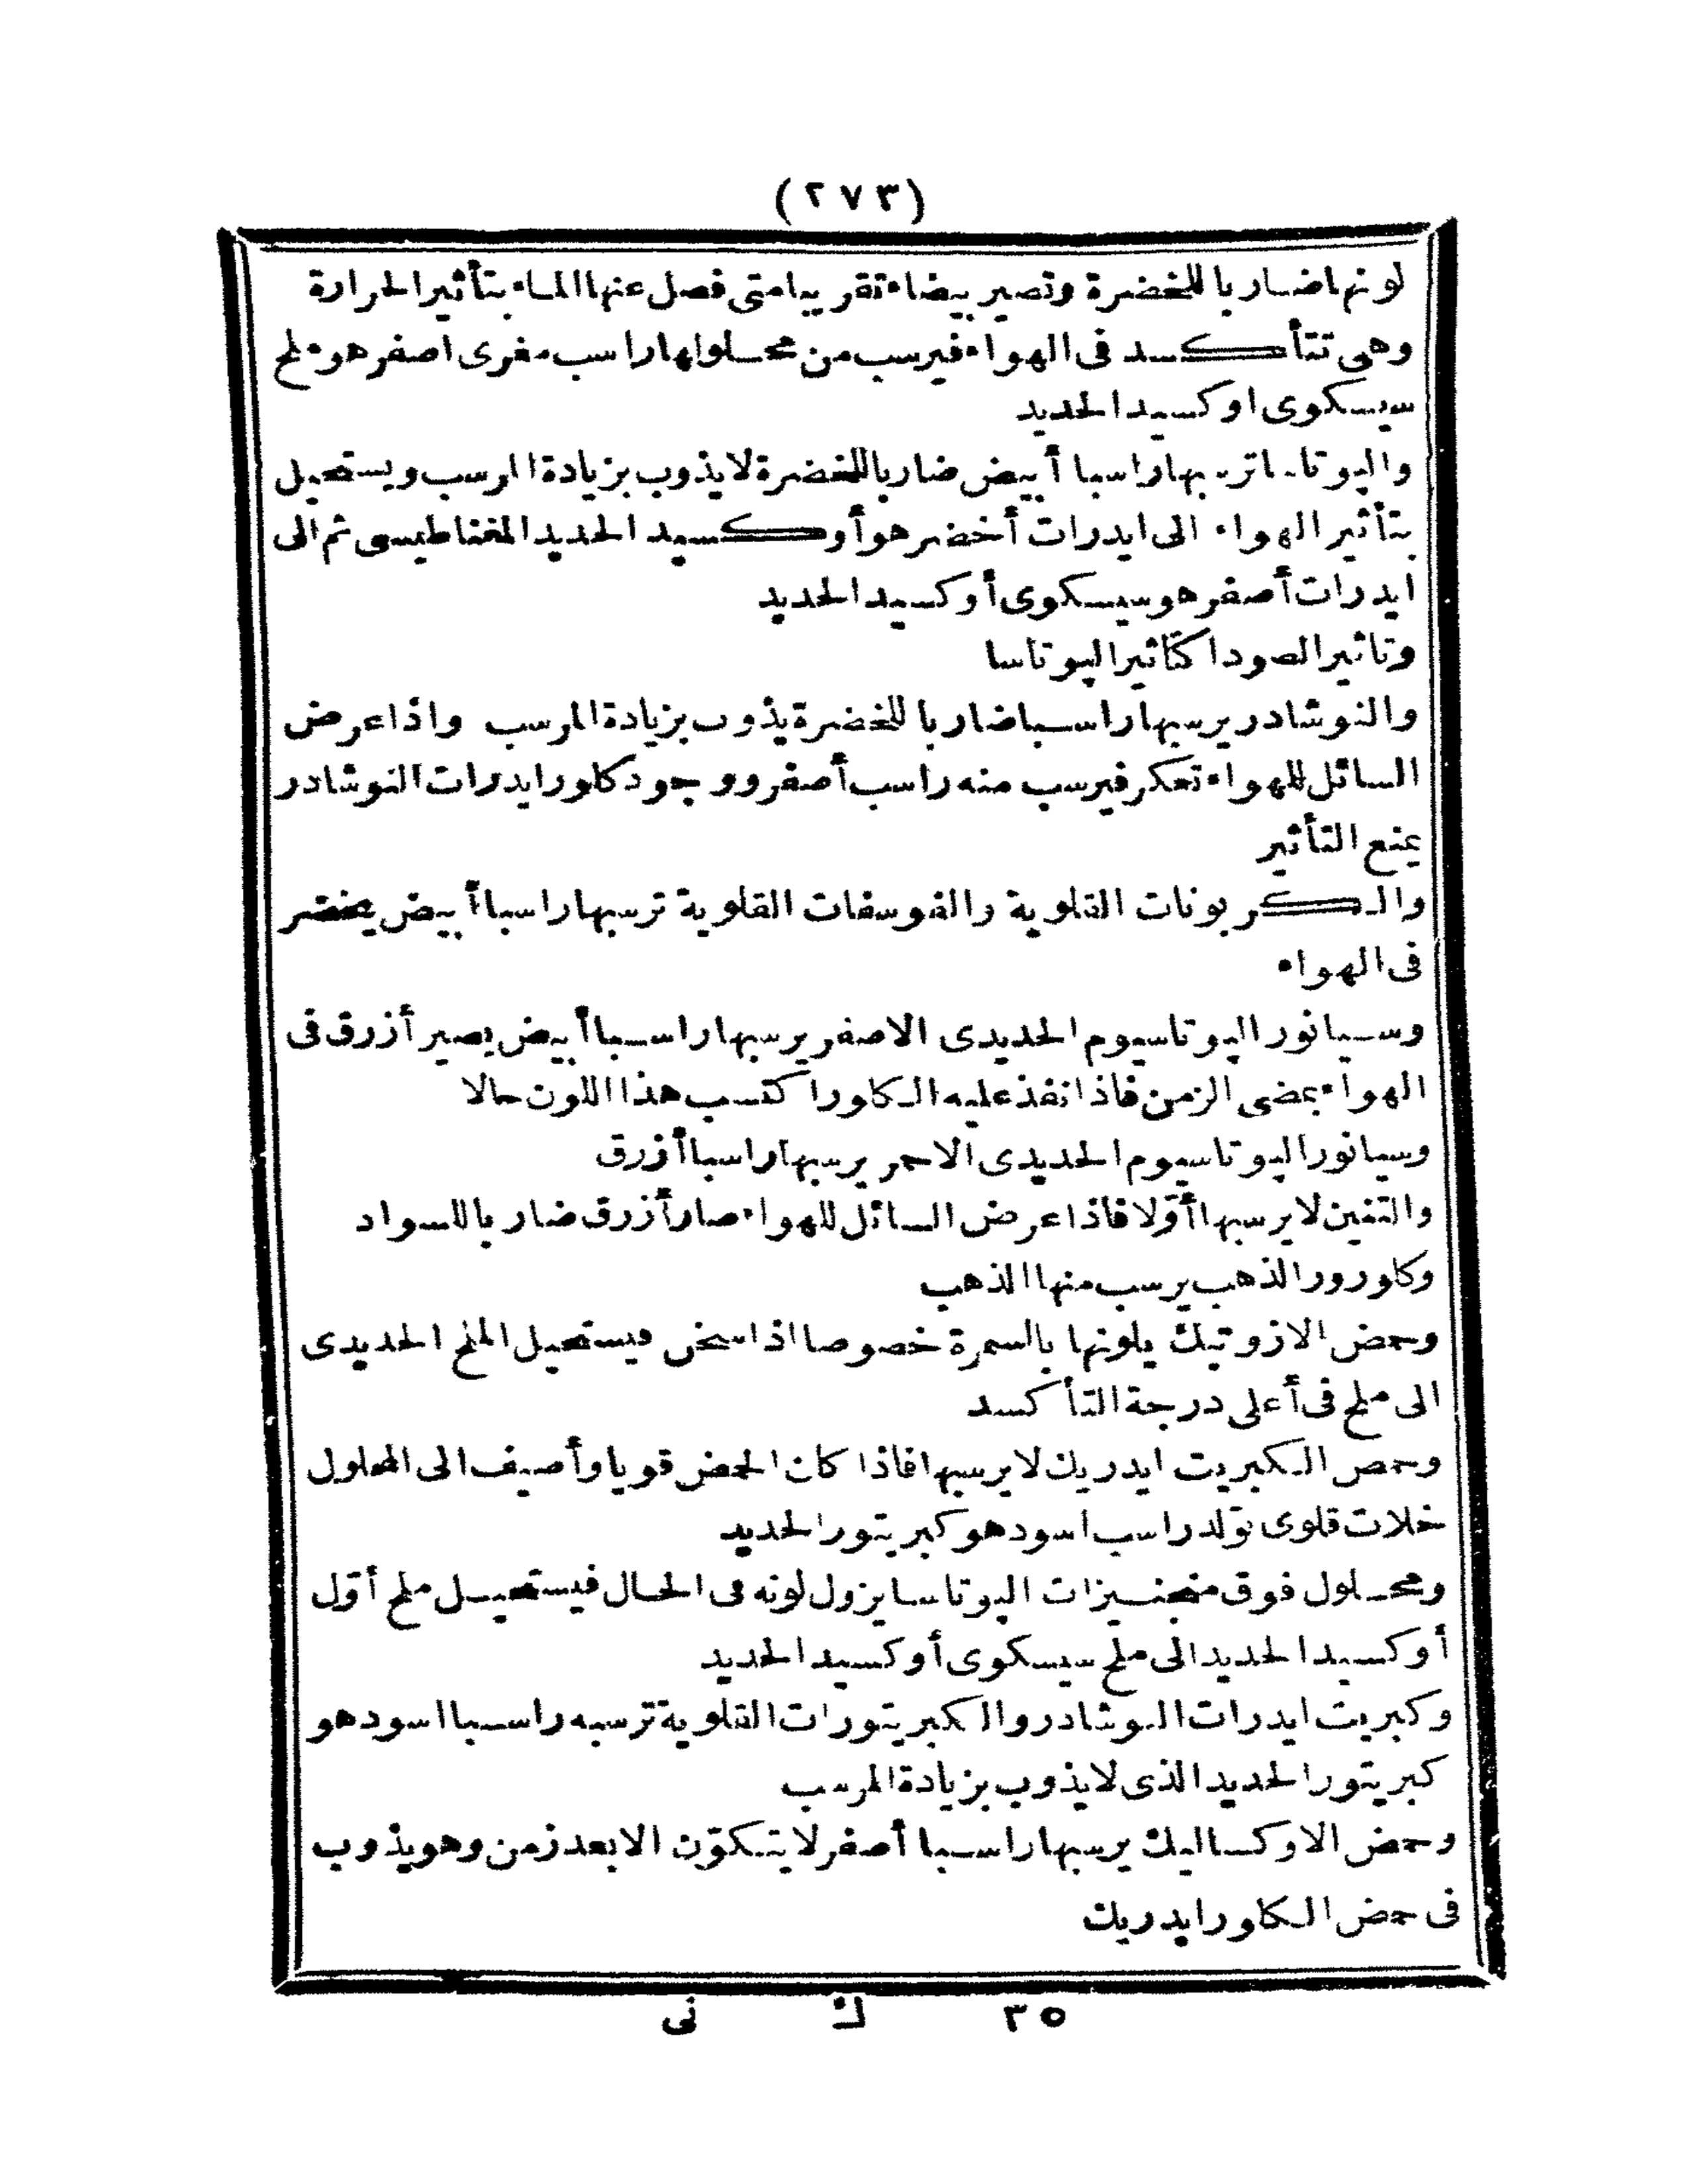 (٢٧٣)
لونها ضاربا للخضرة وتصير بيضاء تقريبا متى فصل عنها الماء بتأثير الحرارة
وهى تتأكسد فى الهواء فيرسب من محلولها راسب مغرى اصفر هو ملح
سيسكوى اوكسيد الحديد
والپوتاسا ترسبها راسبا أبيض ضاربا للخضرة لا يذوب بزيادة المرسب ويستحيل
بتأثير الهواء الى ايدرات أخضر هو أوكسيد الحديد المغناطيسى ثم الى
ايدرات أصفر هو سيسكوى أوكسيد الحديد
وتاثير الصودا كتاثير الپوتاسا
والنوشادر يرسبها راسبا ضاربا للخضرة يذوب بزيادة المرسب واذا عرض
السائل للهواء تعكر فيرسب منه راسب أصفر ووجود كلورايدرات النوشادر
يمنع التأثير
والكربونات القلوية والفوسفات القلوية ترسبها راسبا أبيض يخضر
فى الهواء
وسيانور الپوتاسيوم الحديدى الاصفر يرسبها راسبا أبيض يصير أزرق فى
الهواء بمضى الزمن فاذا نفذ عليه الكلور اكتسب هذا اللون حالا
وسيانور الپوتاسيوم الحديدى الاحمر يرسبها راسبا أزرق
والتنين لا يرسبها أوّلا فاذا عرض السائل للهواء صار أزرق ضاربا للسواد
وكلورور الذهب يرسب منها الذهب
وحمض الازوتيك يلونها بالسمرة خصوصا اذا سخن فيستحيل الملح الحديدى
الى ملح فى أعلى درجة التأكسد
وحمض الكبريت ايدريك لا يرسبها فاذا كان الحمض قويا وأضيف الى المحلول
خلات قلوى تولد راسب اسود هو كبريتور الحديد
ومحلول فوق منجنيزات الپوتاسا يزول لونه فى الحال فيستحيل ملح أوّل
أوكسيد الحديد الى ملح سيسكوى أوكسيد الحديد
وكبريت ايدرات النوشادر والكبريتورات القلوية ترسبه راسبا اسود هو
كبريتور الحديد الذى لا يذوب بزيادة المرسب
وحمض الاوكساليك يرسبها راسبا أصفر لا يتكوّن الا بعد زمن وهو يذوب
فى حمض الكلورايدريك
٣٥ ك نى